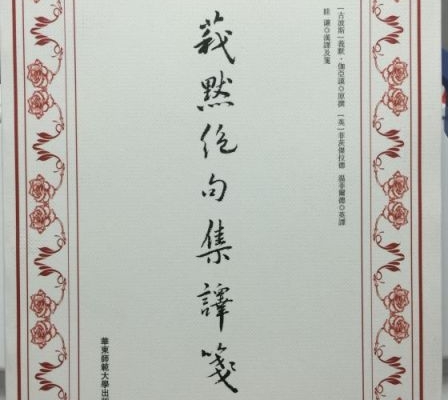 [古波斯]莪默·伽亞謨◎原撰 [英]菲茨傑拉德 溫菲爾德◎英譯
眭謙◎漢譯及箋
莪默絕句集譯箋
華東師範大學出版